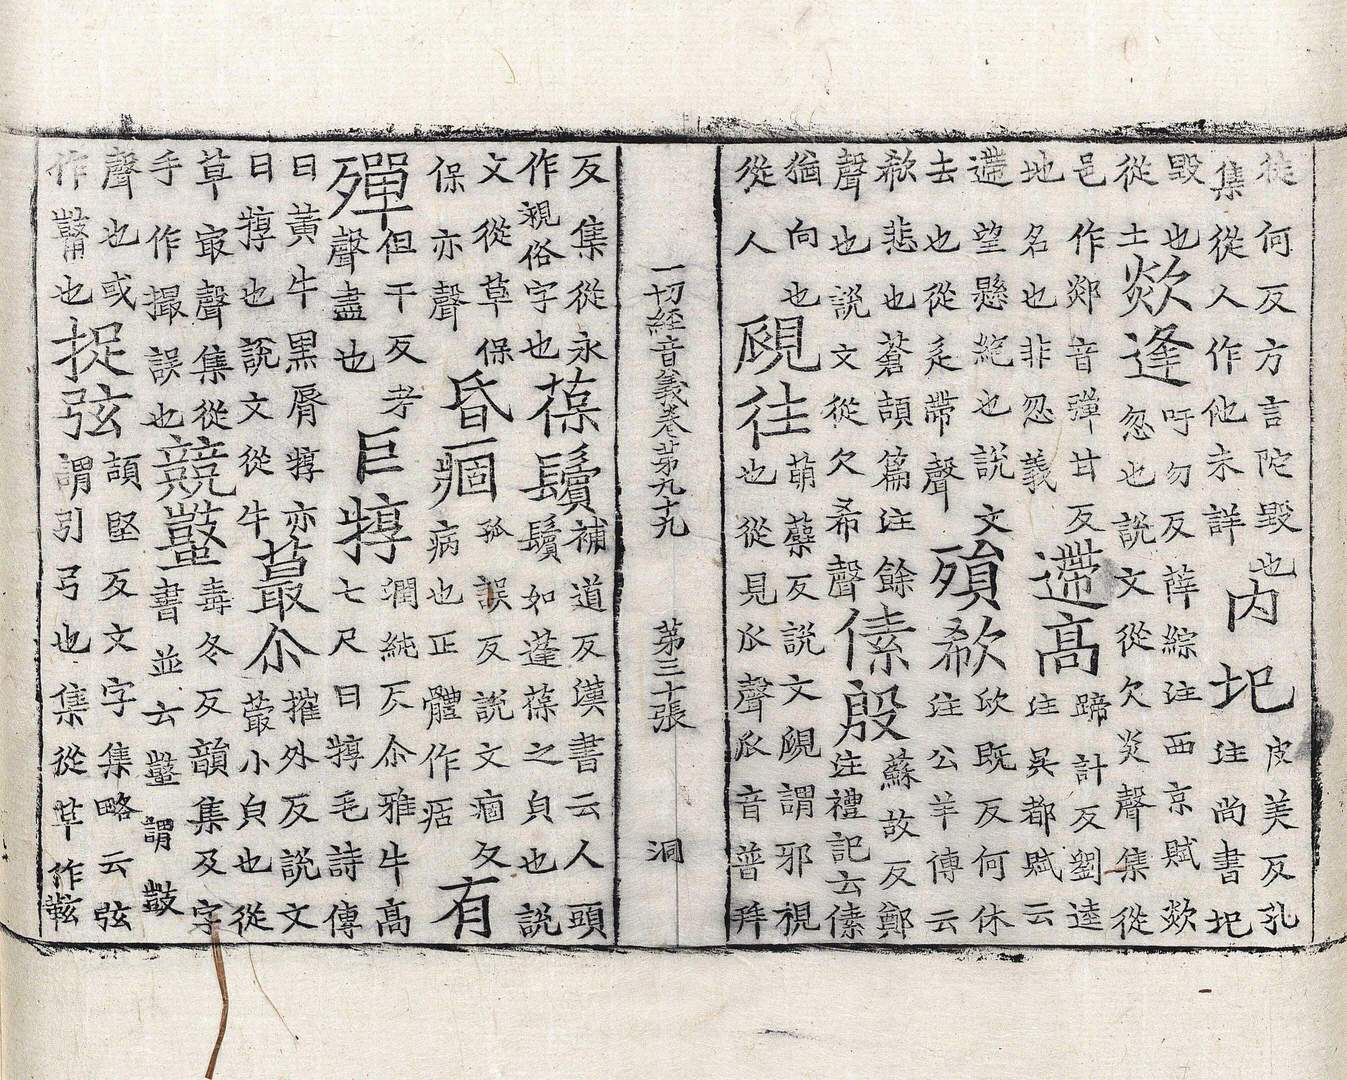 從何反方言陀毀也
集從人作他未詳
內圯
皮美反孔
注尚書圯
毀也
從土
欻逢
吁勿反薛綜注西京賦欻
忽也說文從欠炎聲集從
邑作郯音彈甘反
地名也非忽義
遰高
蹄計反劉逵
注吳都賦云
遰望懸絶也說文
去也從辵帶聲
殞欷
欣既反何休
注公羊傳云
欷悲也蒼頡篇注餘
聲也說文從欠希聲
傃殷
蘇故反鄭
注禮記云傃
猶向也
從人
覛往
萌蘗反說文覛謂邪視
也從見𠂢聲𠂢音普拜
一切經音義卷第九十九 第三十張 洞
反集從永
作覛俗字也
葆鬢
補道反漢書云人頭
鬢如蓬葆之皃也說
文從草保
保亦聲
昏痼
孤誤反說文痼久
病也正體作㽽
有
殫
但干反孝
聲盡也
巨犉
潤純反尒雅牛高
七尺曰犉毛詩傳
曰黃牛黑脣犉亦
曰犉也說文從牛
蕞尒
摧外反說文
蕞小皃也從
草最聲集從
手作撮誤也
競鼜
毒冬反韻集及字
書並云鼜謂鼓
聲也或
作也
捉弦
頡堅反文字集略云弦
謂引弓也集從草作